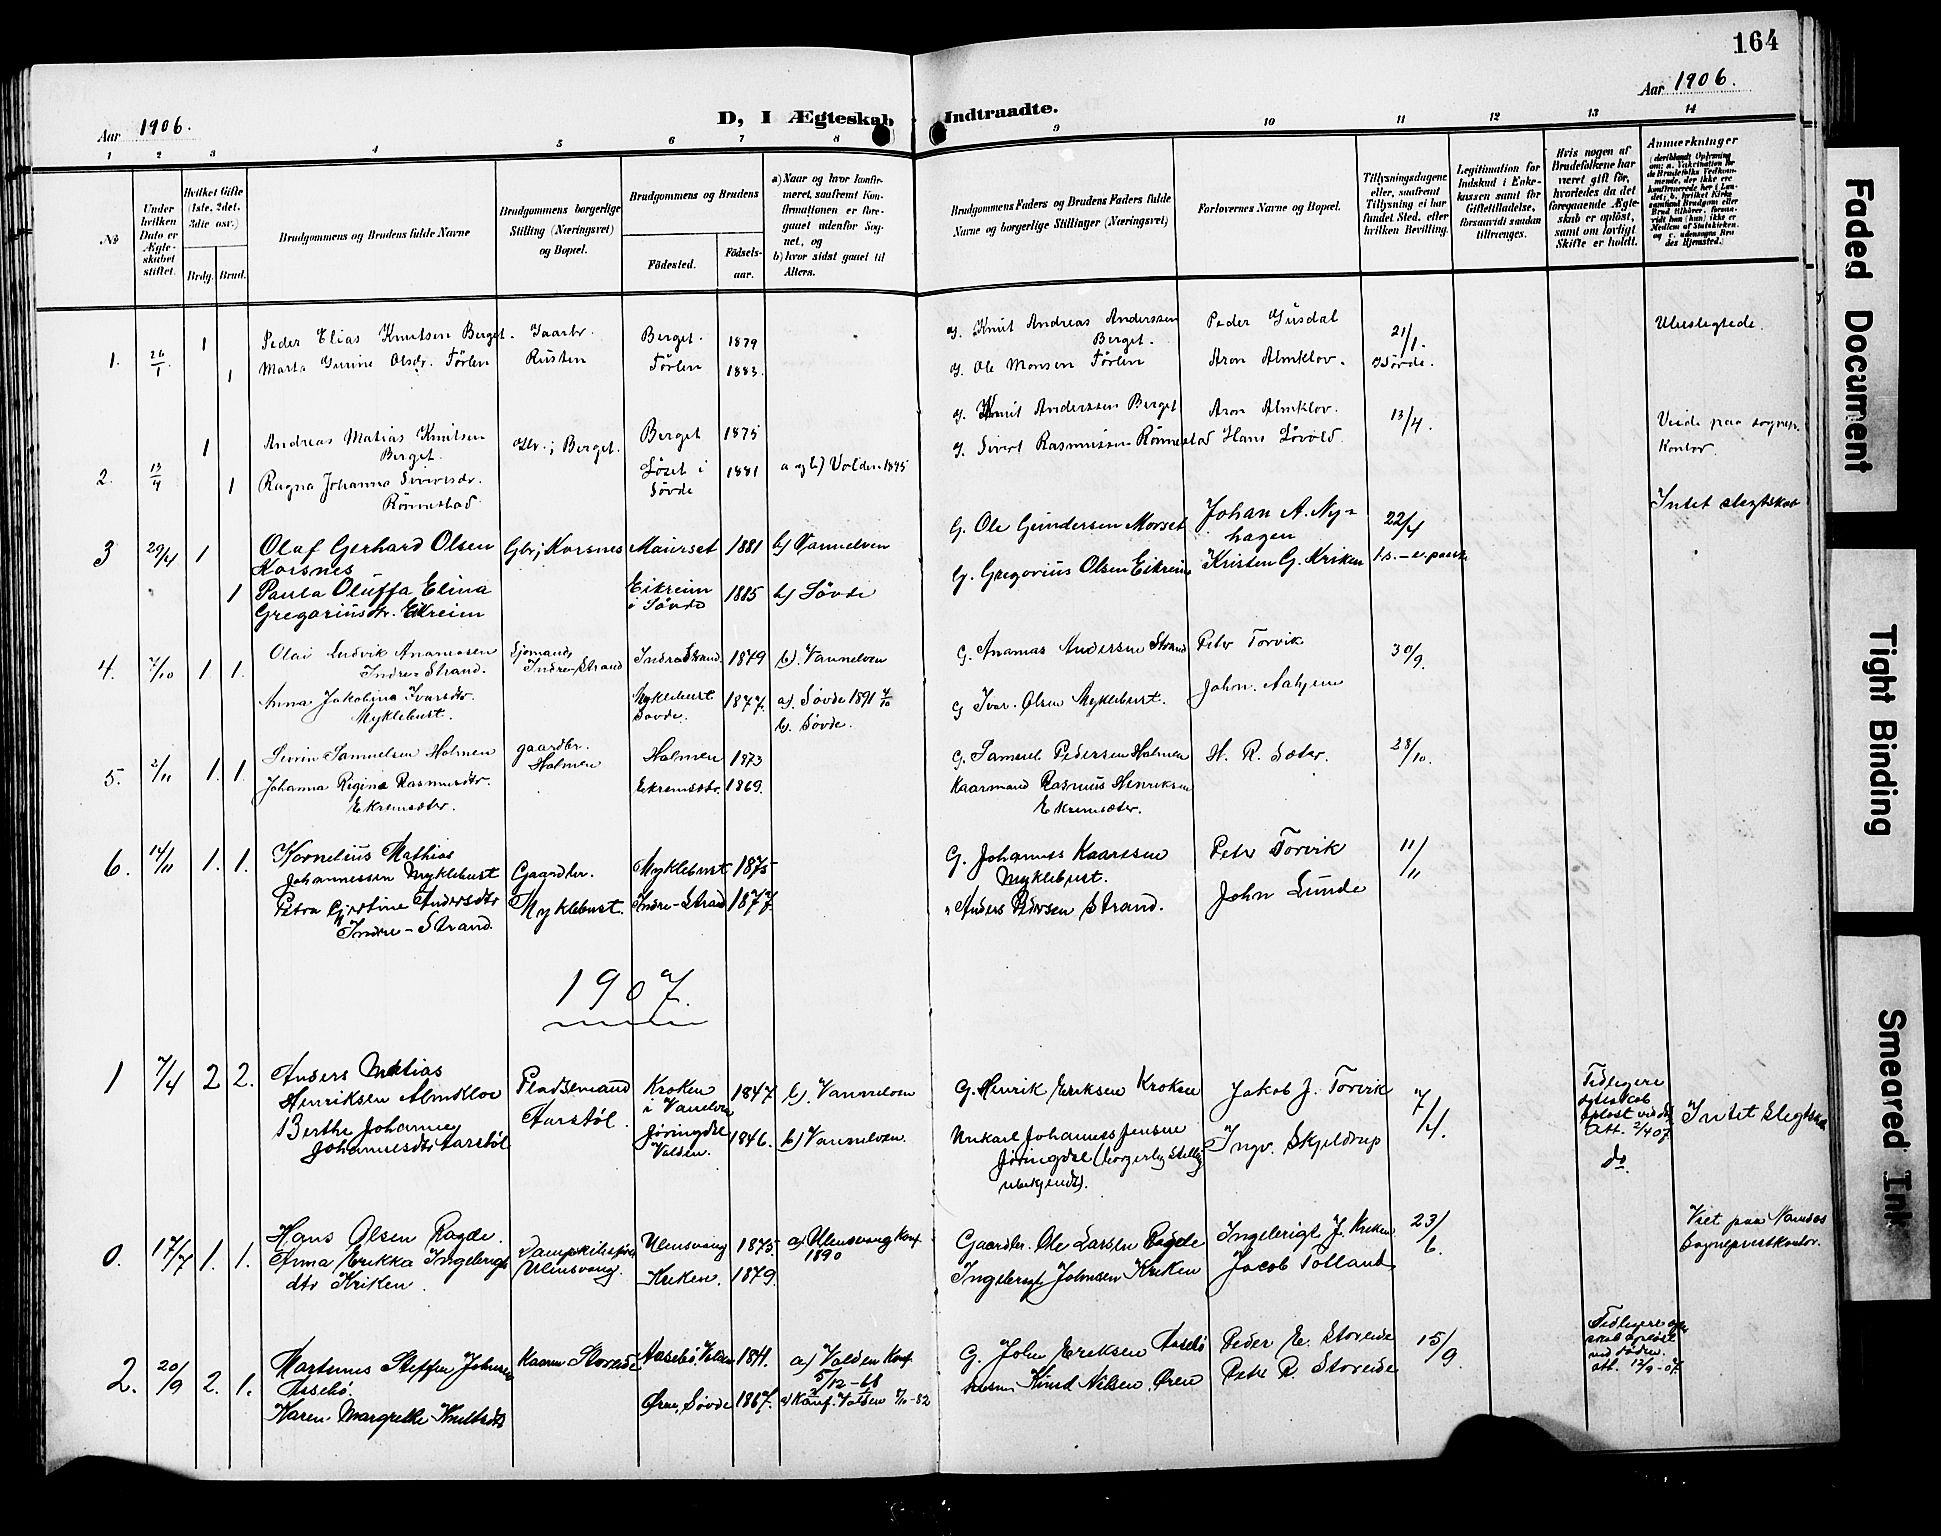 164
Aar 1906.
Aar 1906.
D, I Ægteskab Indtraadte.
1 2 3 4 5 6 7 8 9 10 11 12 13 14
No
Under hvilken Dato er Ægteskabet stiftet.
Hvilket Gifte (1ste, 2det, 3die osv.)
Brdg. Brud.
Brudgommens og Brudens fulde Navne
Brudgommens borgerlige Stilling (Næringsvei) og Bopæl.
Brudgommens og Brudens
Fødested.
Fødselsaar.
a) Naar og hvor konfirmeret, saafremt Konfirmationen er foregaaet udenfor Sognet, og
b) hvor sidst gaaet til Alters.
Brudgommens Faders og Brudens Faders fulde Navne og borgerlige Stillinger (Næringsvei)
Forlovernes Navne og Bopæl.
Tillysningsdagene eller, saafremt Tillysning ei har fundet Sted, efter hvilken Bevilling.
Legitimation for Indskud i Enkekassen samt for Giftetilladelse, forsaavidt saadan tiltrænges.
Hvis nogen af Brudefolkene har været gift før, hvorledes da det foregaaende Ægteskab er opløst, samt om lovligt Skifte er holdt.
Anmerkninger
1. 26/1 1 Peder Elias Knutsen Berget. Gaarbr. Berget. 1879 G. Knut Andreas Anderssen Berget. Peder Gusdal 21/1. Ubeslegtede.
1 Marta Gurine Olsdr. Førlen Rusten Førlen 1883. G. Ole Monsen Førlen Aron Almklov. Søvde.
2. 13/4 1 Andreas Matias Knutsen Berget. Gbr.; Berget. Berget 1875 G. Knut Anderssen Berget Aron Almklov. 13/4. Viede paa sognepr. kontor.
1 Ragna Johanna Sivertsdr. Rønnestad Løset i Søvde 1881 a og b) Volden 1895 G. Sivert Rasmussen Rønnestad Hans Løvold
3 29/4 1 Olaf Gerhard Olsen Korsnes Gbr; Korsnes 1881 b) Vannelven G. Ole Gundersen Morset Johan A. Nyhagen 22/4 Intet slegtskab
1 Paula Oluffa Elina Gregoriusdr. Eikreim Eikreim i Søvde 1885 b) Søvde G. Gregorius Olsen Eikreim Kristen G. Kriken
4. 7/10 1. 1. Olai Ludvik Ananiasen Indre-Strand. Sjømand, Indre-Strand Indre Strand. 1879 b). Vannelven G. Ananias Andersen Strand Peter Torvik 30/9.
Anna Jakolina Ivarsdtr. Myklebust. Myklebust Søvde. 1877. a). Søvde 1891 4/10 b. Søvde. G Ivar Olsen Myklebust. John. Aahjem
5. 2/11 1. 1. Sevrin Samuelsen Holmen gaardbr. Holmen Holmen 1873 G. Samuel Pedersen Holmen H. R. Sæter. 28/10.
Johanna Regina Rasmusdtr. Ekremsæter. Ekremsætr. 1869. Kaarmand Rasmus Henriksen Ekremsæter.
6. 14/11 1. 1. Kornelius Mathias Johannessen Myklebust Gaardbr. Myklebust 1875 G. Johannes Kaarssen Myklebust. Peter Torvik 11/11
Petra Gjertine Andersdtr Indre-Strand. Myklebust. Indre-Strand 1877. " Anders Pedersen Strand. John Lunde
1907.
1 7/4 2 2. Anders Matias Henriksen Almklov Pladsemand Aarstøl Kroken i Vanelven 1847 b). Vannelven G. Henrik Eriksen Kroken Jakob J. Torvik 7/4. Tidligere egteskab opløst ved død Att. 2/4 07. Intet slegtskab
Berthe Johanne Johannesdtr Aarstøl Jøringdal Volden. 1846. b) Vannelven. Johannes Jensen Jøringdal (borgerlig stilling ubekjendt). Ingv. Skjeldrup do.
0. 17/7 1. 1. Hans Olsen Ragde. Ulensvang. Ulensvang 1875. a) Ulensvang Konf. 1890 Gaardbr. Ole Larsen Ragde Ingebrigt J. Kriken 23/6. Viet paa Vanelvs Sogneprestkontor.
Anna Erikka Ingebrigtsdtr Kriken. Kriken. 1879. Ingebrigt Johnsen Kriken Jacob Tolland
2. 20/9 2. 1. Martinus Steffen Johnsen Aasebø. Kaarm Storeide Aasebø, Volden 1841. a) Volden Konf. 5/12-68 G. John Eriksen Aasebø Peder E. Storeide 15/9. Tidligere egteskab opløst ved døden. att. 12/9-07.
Karen Margrethe Knutsdtr Øren, Søvde 1867. a) Konf. Volden -82 Knud Nilsen Øren Petr R. Storeide
Faded Document
Tight Binding
Smeared Ink